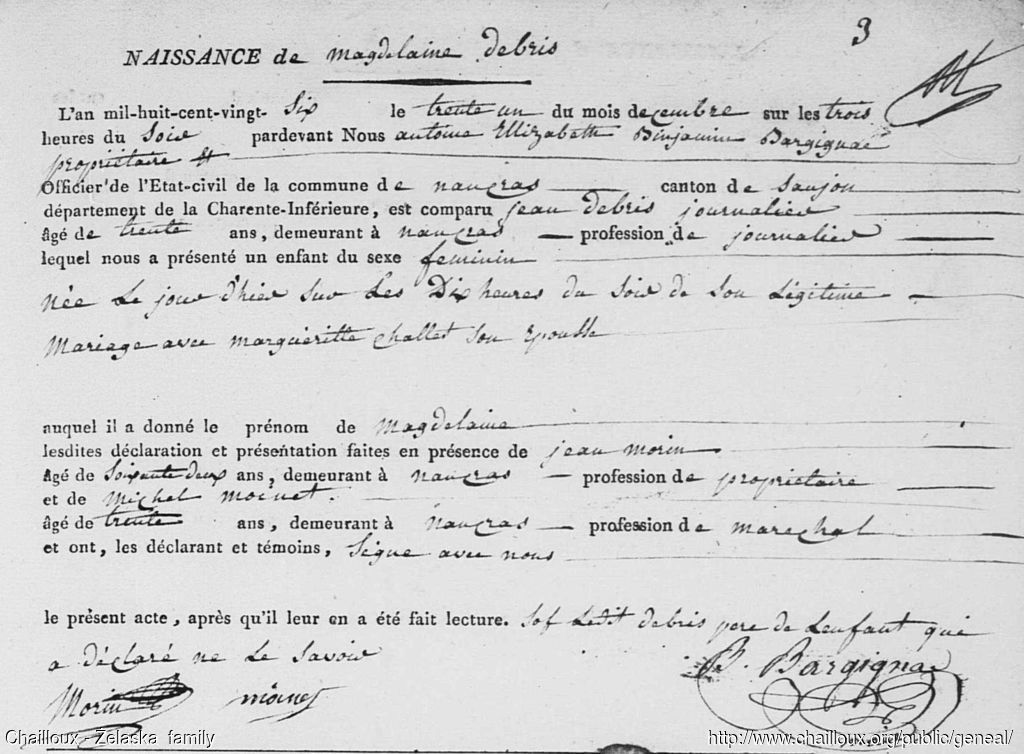 3
NAISSANCE de magdelaine debris
L'an mil-huit-cent-vingt- six le trente un du mois decembre sur les trois
heures du Soir pardevant Nous antoine Ellizabeth Binjamin Bargignac
propriétaire &
Officier de l'Etat-civil de la commune de nancras canton de Saujon
département de la Charente-Inférieure, est comparu jean debris journalier
âgé de trente ans, demeurant à nancras profession de journalier
lequel nous a présenté un enfant du sexe feminin
née Le jour d'hier sur Les Dix heures du Soir de Son Légitime
Mariage avec margueritte challet Son Epousse
auquel il a donné le prénom de magdelaine
lesdites déclaration et présentation faites en présence de jean morin
âgé de Soixante deux ans, demeurant à nancras profession de propriétaire
et de michel moinet.
âgé de trente ans, demeurant à nancras profession de marechal
et ont, les déclarant et témoins, Signe avec nous
le présent acte, après qu'il leur en a été fait lecture. Sof Ledit debris pere de Lenfant qui
a déclaré ne Le Savoir
B. Bargignac
Morin moinet
Chailloux - Zelaska family http://www.chailloux.org/public/geneal/